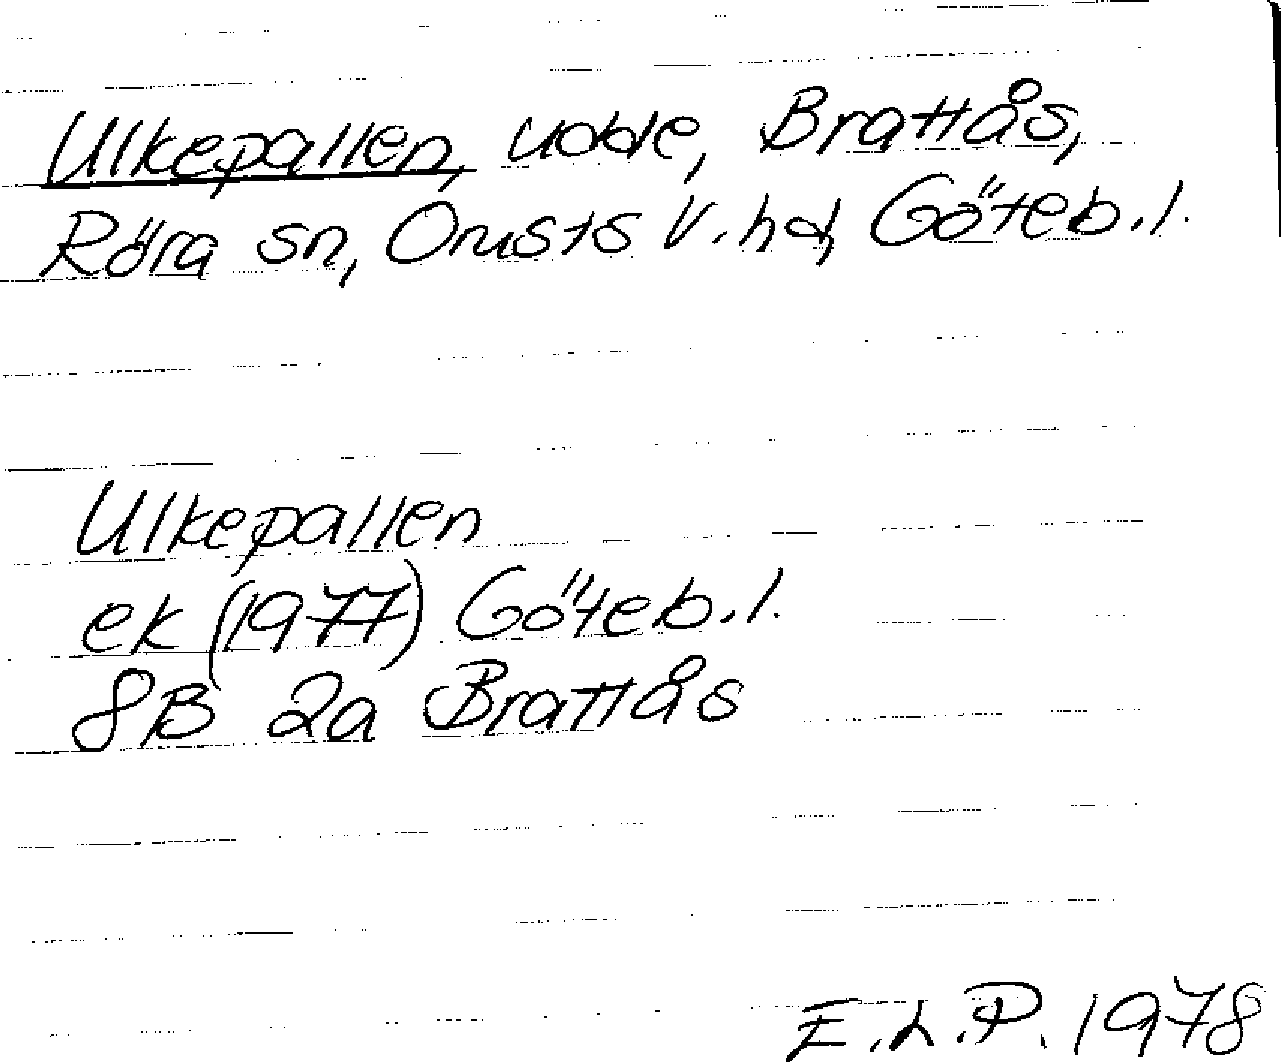 Ulkepallen, udde, Brattås,
Röra sn, Orusts V. hd, Göteb.l.
Ulkepallen
ek (1977) Göteb.l.
8B 2a Brattås
E.L.P. 1978